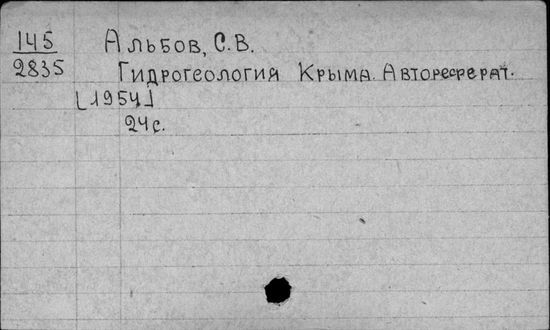 145 Альбов, С.В.
2835 Гидрогеология Крыма. Автореферат.
[1954]
24 с.